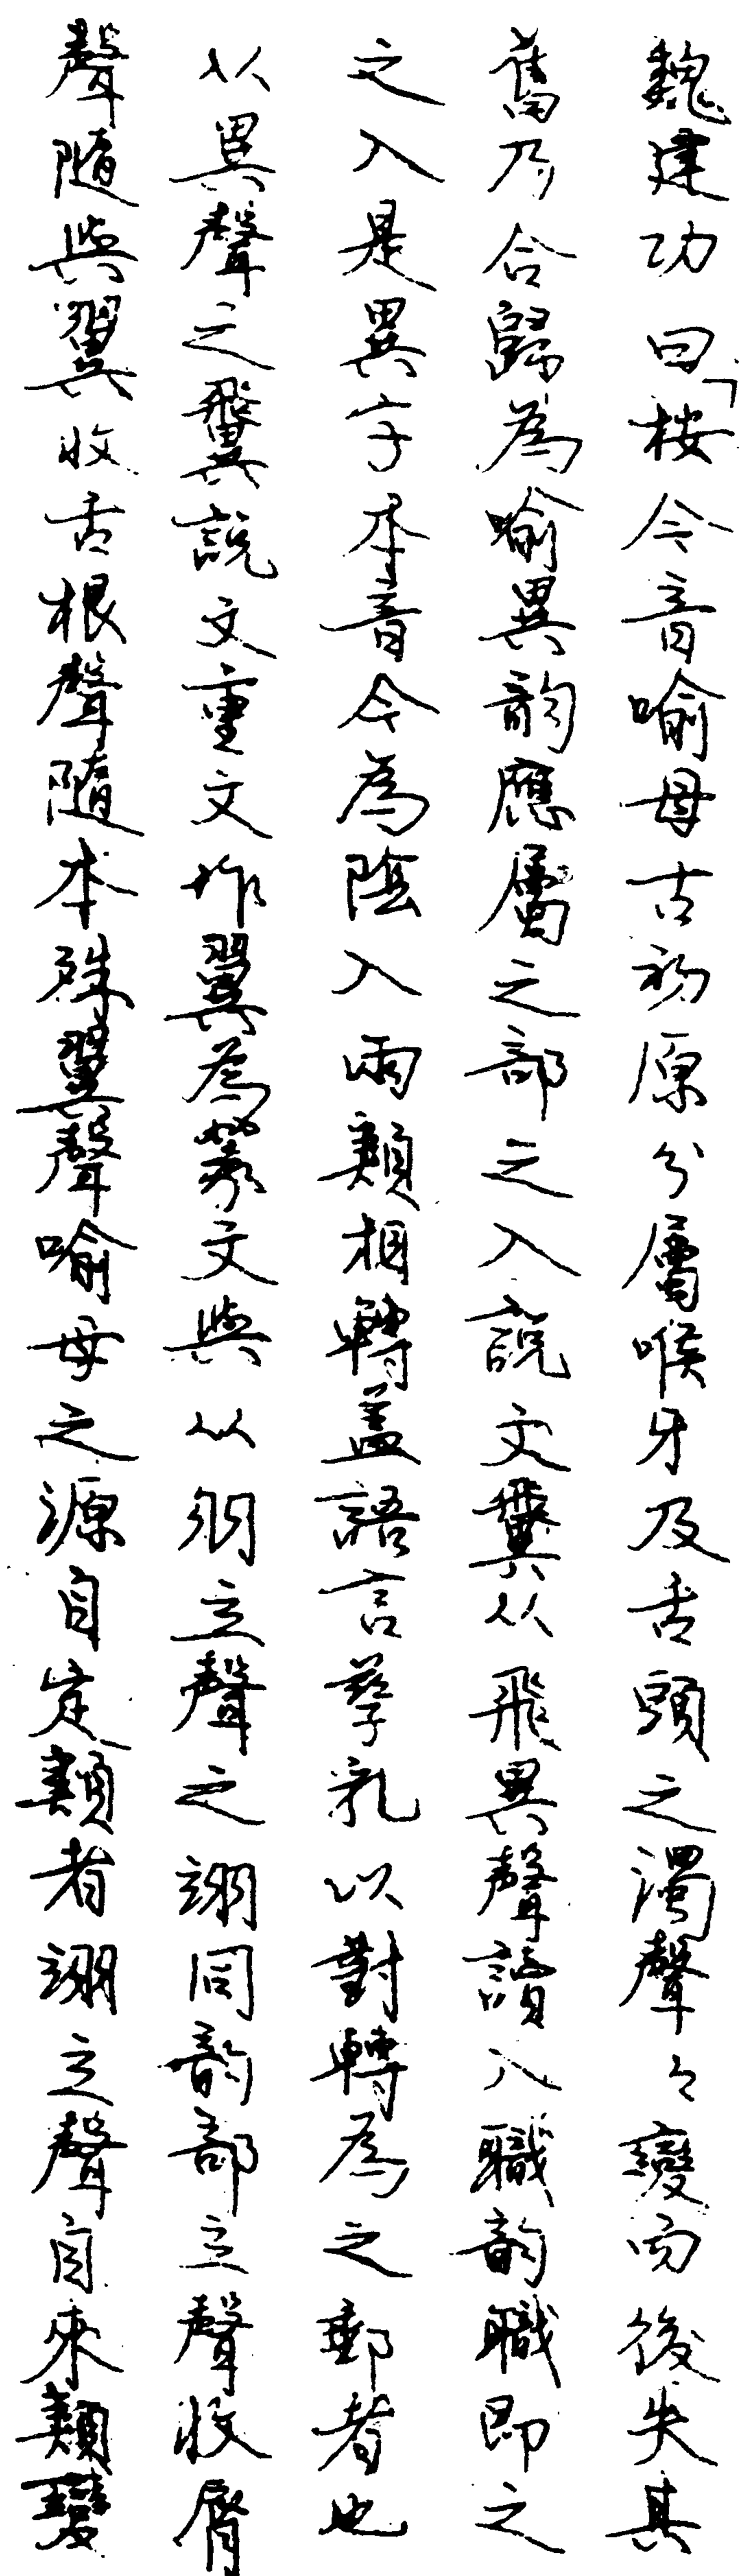 魏建功曰「桉今音喻母古初原分屬喉牙及舌頭之濁聲々變而後失其
舊乃合歸為喻異韵應屬之部之入説文𩙺从飛異聲讀入職韵職即之
之入是異字本音今為陰入兩類相轉蓋語言孳乳以對轉為之郵者也
从異聲之𩙺説文重文作翼為篆文與从羽立聲之翊同韵部立聲收脣
聲隨與翼收舌根聲隨本殊翼聲喻母之源自定類者翊之聲自來類變